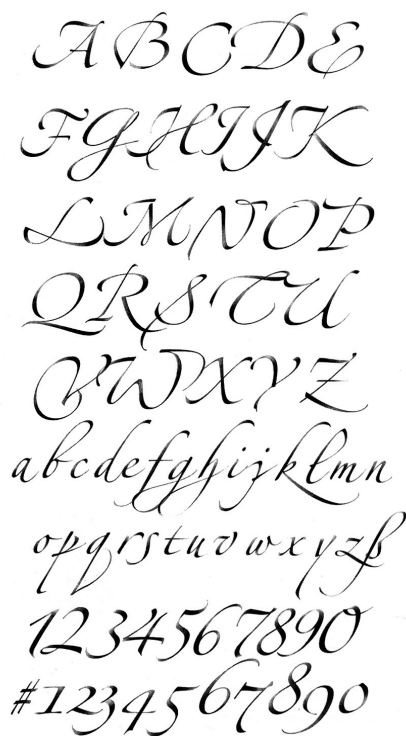 ABCDE
FGHIJK
LMNOP
QRSTU
VWXYZ
abcdefghijklmn
opqrstuvwxyzß
1234567890
#1234567890